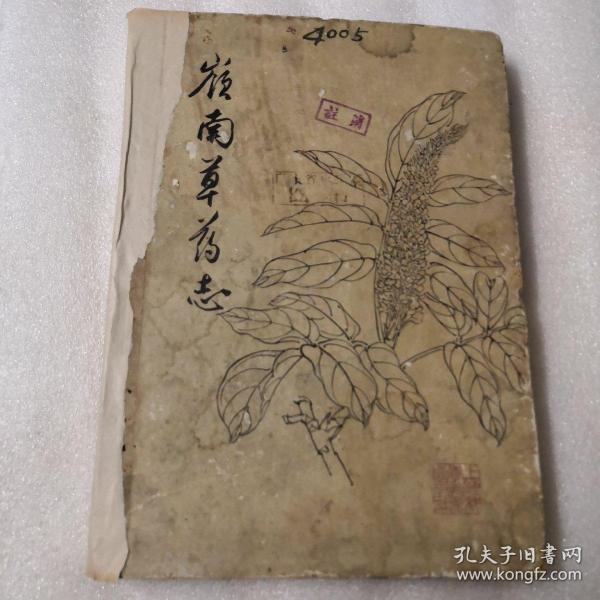 4005
嶺南草药志
註销
孔夫子旧書网
www.kongfz.com